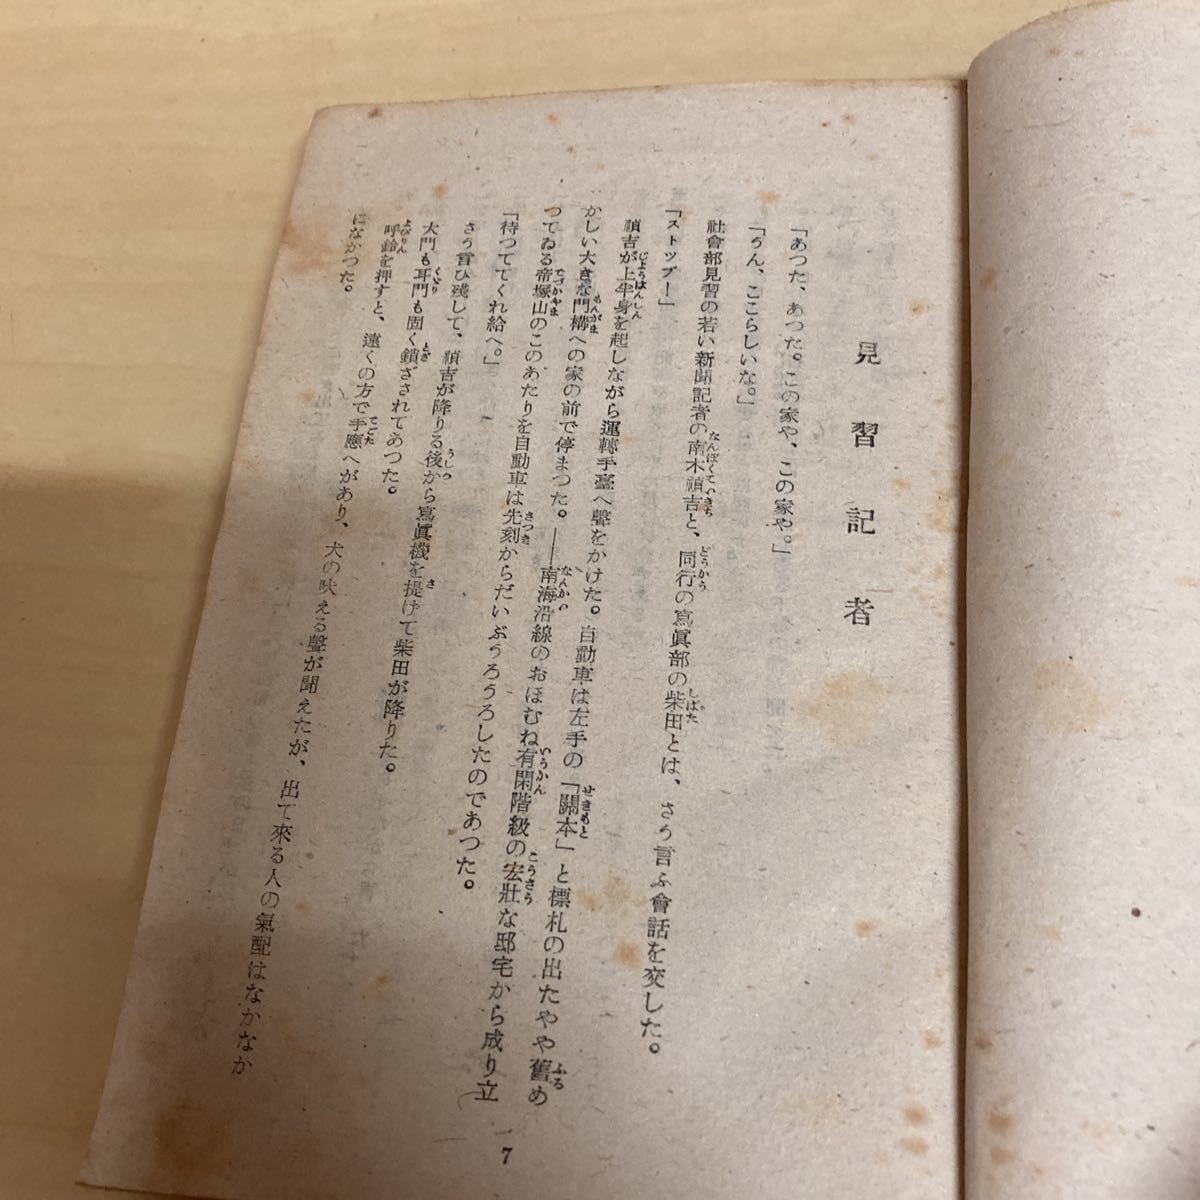 見習記者
「あつた、あつた。この家や、この家や。」
「うん、ここらしいな。」
社會部見習の若い新聞記者の南木禎吉と、同行の寫眞部の柴田とは、さう言ふ會話を交した。
「ストップー」
禎吉が上半身を起しながら運轉手臺へ聲をかけた。自動車は左手の「關本」と標札の出たやや舊め
かしい大きな門構への家の前で停まつた。――南海沿線のおほむね有閑階級の宏壯な邸宅から成り立
つてゐる帝塚山のこのあたりを自動車は先刻からだいぶうろうろしたのであつた。
「待つててくれ給へ。」
さう言ひ残して、禎吉が降りる後から寫眞機を提げて柴田が降りた。
大門も耳門も固く鎖ざされてあつた。
呼鈴を押すと、遠くの方で手應へがあり、犬の吠える聲が聞えたが、出て來る人の氣配はなかなか
になかつた。
7